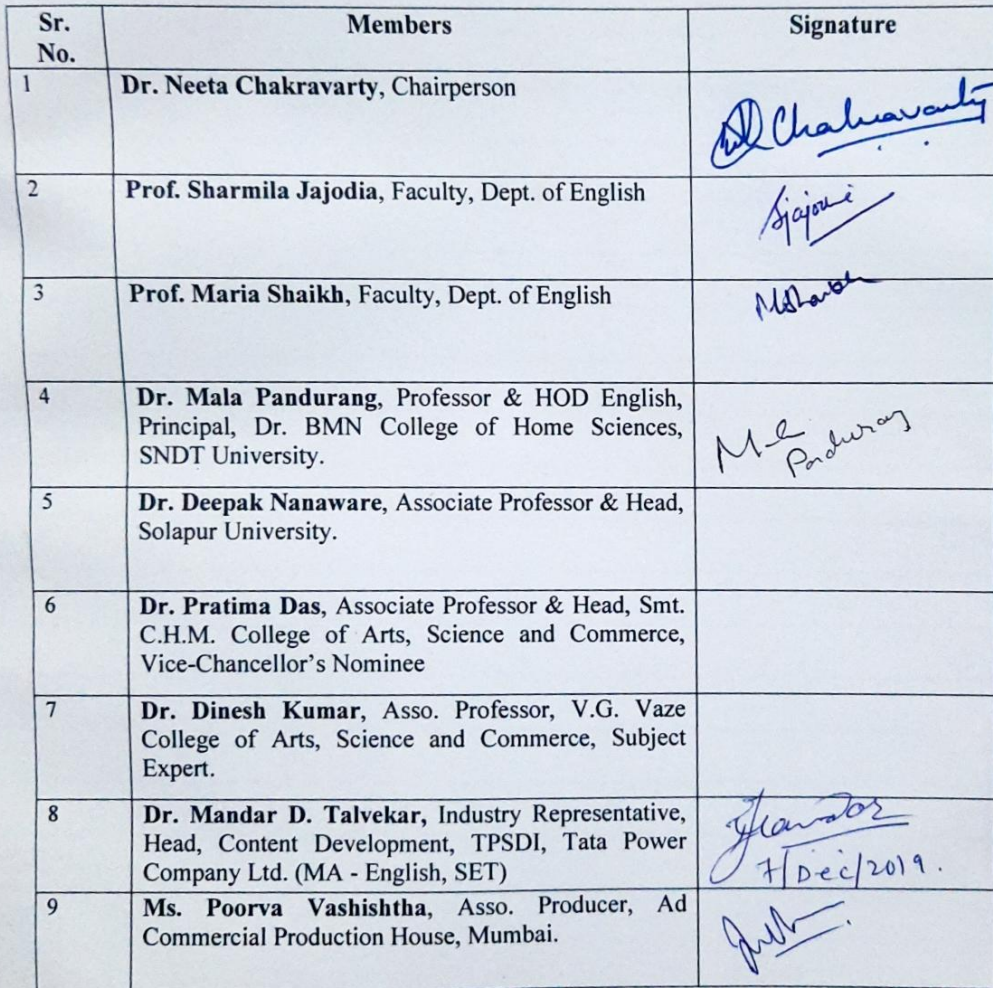 Sr. No. Members Signature
1 Dr. Neeta Chakravarty, Chairperson
Chakravarty
2 Prof. Sharmila Jajodia, Faculty, Dept. of English
3 Prof. Maria Shaikh, Faculty, Dept. of English
MShaikh
4 Dr. Mala Pandurang, Professor & HOD English,
Principal, Dr. BMN College of Home Sciences,
SNDT University.
Mala
Pandurang
5 Dr. Deepak Nanaware, Associate Professor & Head,
Solapur University.
6 Dr. Pratima Das, Associate Professor & Head, Smt.
C.H.M. College of Arts, Science and Commerce,
Vice-Chancellor's Nominee
7 Dr. Dinesh Kumar, Asso. Professor, V.G. Vaze
College of Arts, Science and Commerce, Subject
Expert.
8 Dr. Mandar D. Talvekar, Industry Representative,
Head, Content Development, TPSDI, Tata Power
Company Ltd. (MA - English, SET)
7/Dec/2019.
9 Ms. Poorva Vashishtha, Asso. Producer, Ad
Commercial Production House, Mumbai.